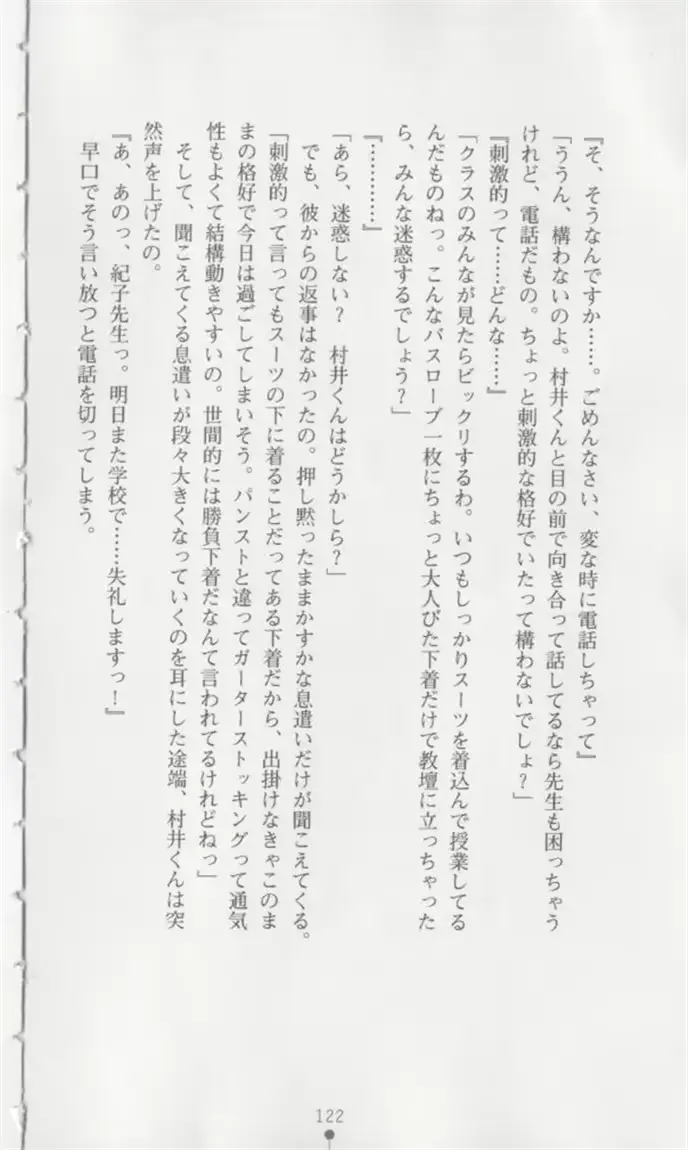 『そ、そうなんですか……。ごめんなさい、変な時に電話しちゃって』
「ううん、構わないのよ。村井くんと目の前で向き合って話してるなら先生も困っちゃう
けれど、電話だもの。ちょっと刺激的な格好でいたって構わないでしょ？」
『刺激的って……どんな……』
「クラスのみんなが見たらビックリするわ。いつもしっかりスーツを着込んで授業してる
んだものねっ。こんなバスローブ一枚にちょっと大人びた下着だけで教壇に立っちゃった
ら、みんな迷惑するでしょう？」
『…………』
「あら、迷惑しない？　村井くんはどうかしら？」
でも、彼からの返事はなかったの。押し黙ったままかすかな息遣いだけが聞こえてくる。
「刺激的って言ってもスーツの下に着ることだってある下着だから、出掛けなきゃこのま
まの格好で今日は過ごしてしまいそう。パンストと違ってガーターストッキングって通気
性もよくて結構動きやすいの。世間的には勝負下着だなんて言われてるけれどねっ」
そして、聞こえてくる息遣いが段々大きくなっていくのを耳にした途端、村井くんは突
然声を上げたの。
『あ、あのっ、紀子先生っ。明日また学校で……失礼しますっ！』
早口でそう言い放つと電話を切ってしまう。
122